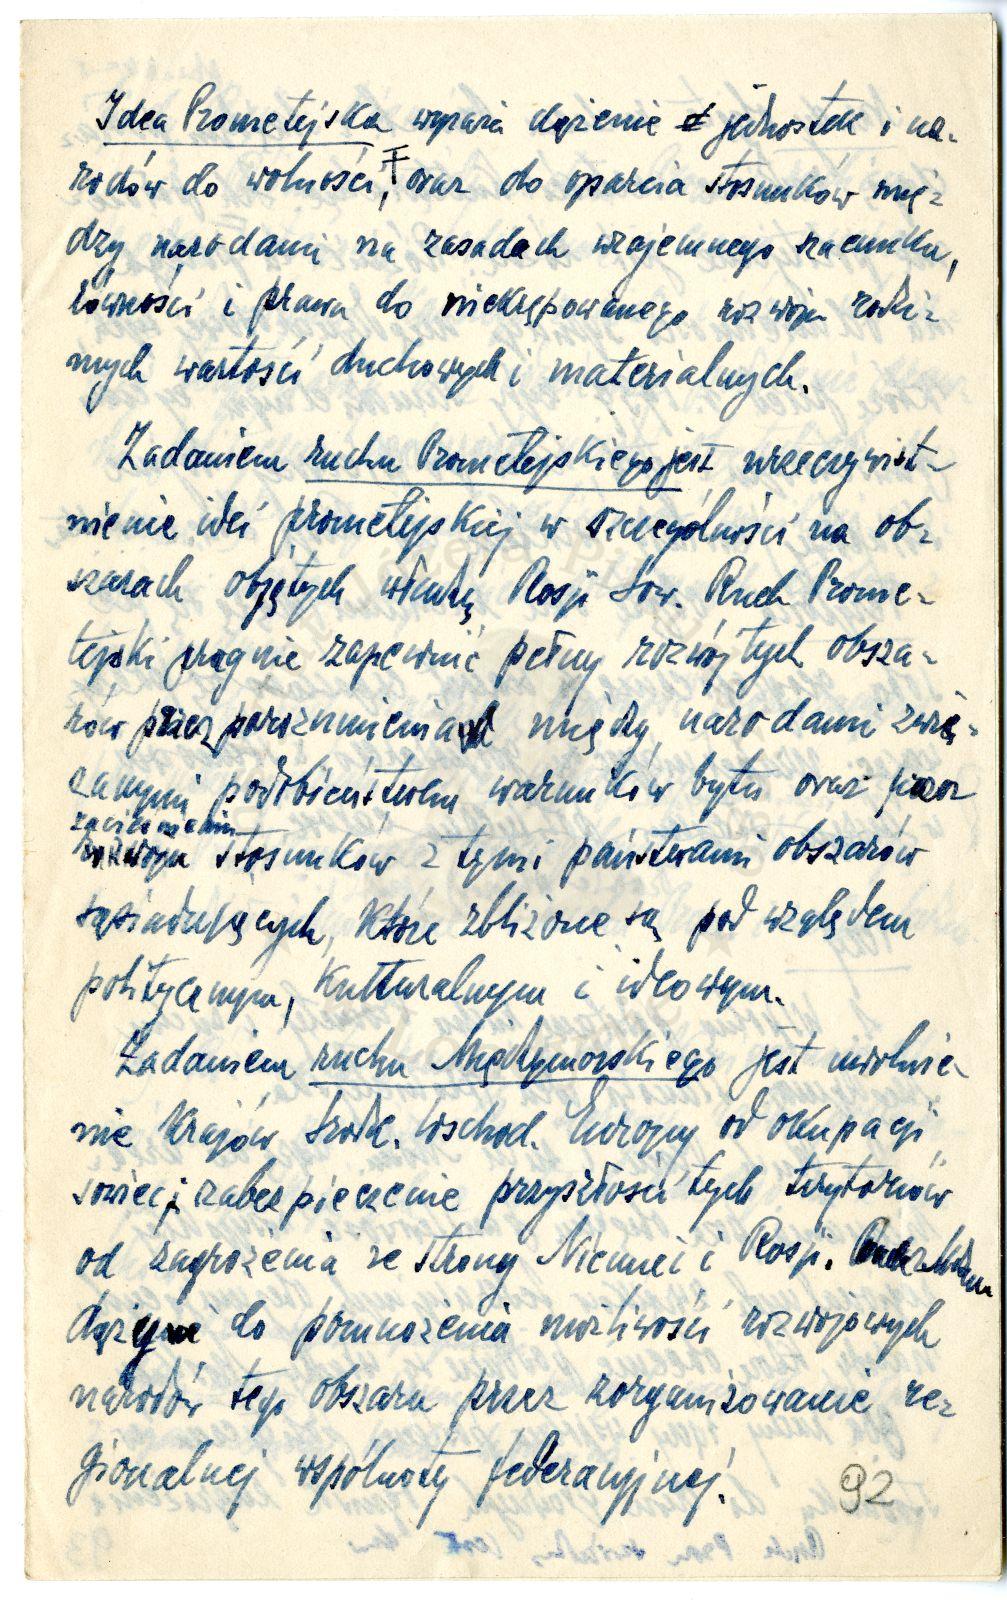 Idea Prometejska wyraża dążenie jednostek i na-
rodów do wolności, oraz do oparcia stosunków mię-
dzy narodami na zasadach wzajemnego szacunku,
równości i prawa do nieskrępowanego rozwoju rodzi-
mych wartości duchowych i materialnych.
Zadaniem ruchu Prometejskiego jest urzeczywist-
nienie idei prometejskiej w szczególności na ob-
szarach objętych władzą Rosji Sow. Ruch Prome-
tejski pragnie zapewnić pełny rozwój tych obsza-
rów przez porozumienia między narodami zwią-
zanymi podobieństwem warunków bytu oraz przez
zacieśnienie
rozwoju stosunków z tymi państwami obszarów
sąsiadujących, które zbliżone są pod względem
politycznym, kulturalnym i ideowym.
Zadaniem ruchu Międzymorskiego jest uwolnie-
nie Krajów Środk. Wschod. Europy od okupacji
sowiec. i zabezpieczenie przyszłości tych terytoriów
od zagrożenia ze strony Niemiec i Rosji. Ruch
do pomnożenia możliwości rozwojowych
narodów tego obszaru przez zorganizowanie re-
gionalnej wspólnoty federacyjnej.
92